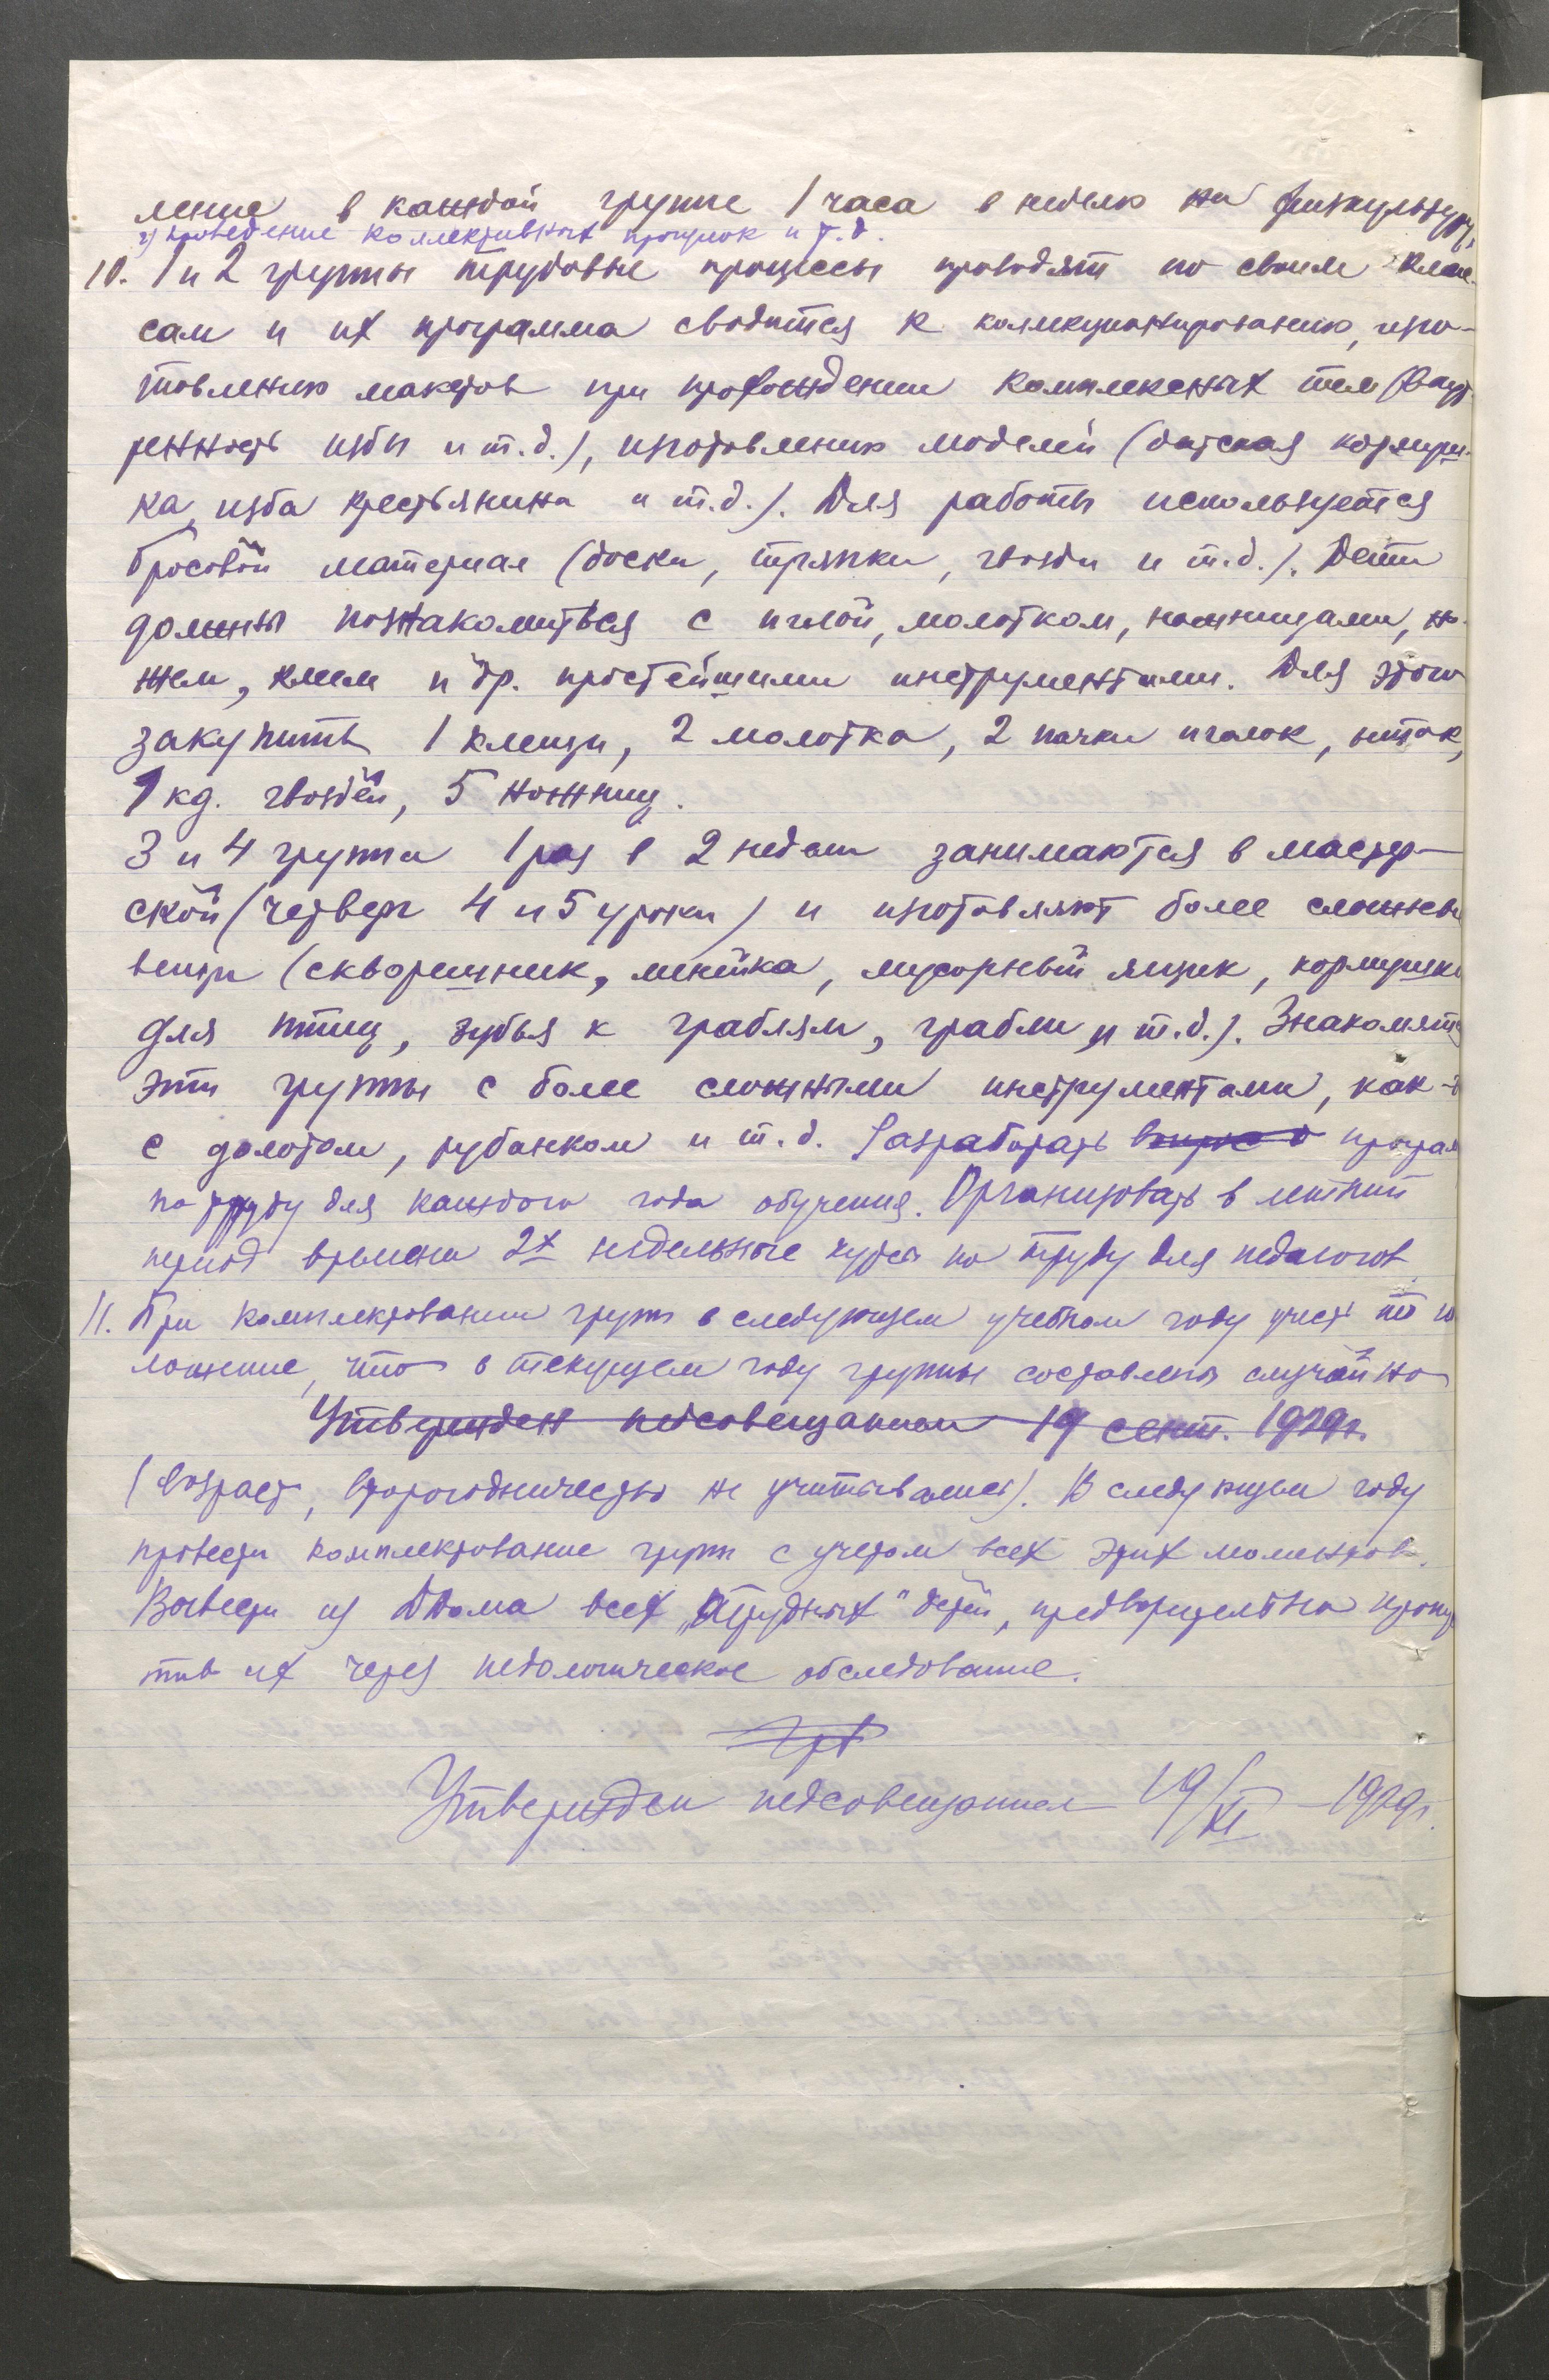 ление в каждой группе 1 часа в неделю на физкультуру,
г) проведение коллективных прогулок и т.д.
10. 1 и 2 группы трудовые процессы проводят по своим клас-
сам и их программа сводится к коллекционированию, изго-
товлению макетов при прохождении комплексных тем (внут-
ренность избы и т.д.), изготовлению моделей (детская
ка, изба крестьянина и т.д.). Для работы используется
бросовый материал (доски, тряпки, гвозди и т.д.). Дети
должны познакомиться с иглой, молотком, ножницами, но-
жем, клеем и др. простейшими инструментами. Для этого
закупить 1 клещи, 2 молотка, 2 пачки иголок, ниток,
1 кг. гвоздей, 5 ножниц.
3 и 4 группа 1 раз в 2 недели занимаются в мастер-
ской (четверг 4 и 5 уроки) и изготовляют более сложные
вещи (скворешник, мусорный ящик, кормушки
для птиц, зубья к граблям, грабли и т.д.). Знакомятся
эти группы с более сложными инструментами, как-то
с долотом, рубанком и т.д. Разработать програм
по труду для каждого года обучения. Организовать в летний
период времени 2х недельные курсы по труду для педагогов.
11. При комплектовании групп в следующем учебном году учесть то по
ложение, что в текущем году группы составлены случайно
Утвержден педсовещанием 19 сент. 1929г.
(возраст, второгодничество не учитывались). В следующем году
провести комплектование групп с учетом всех этих моментов.
Вывести из ДДома всех „трудных" детей, предварительно пропус
тив их через педологическое обследование.
Утвержден педсовещанием 19/XI – 1929г.